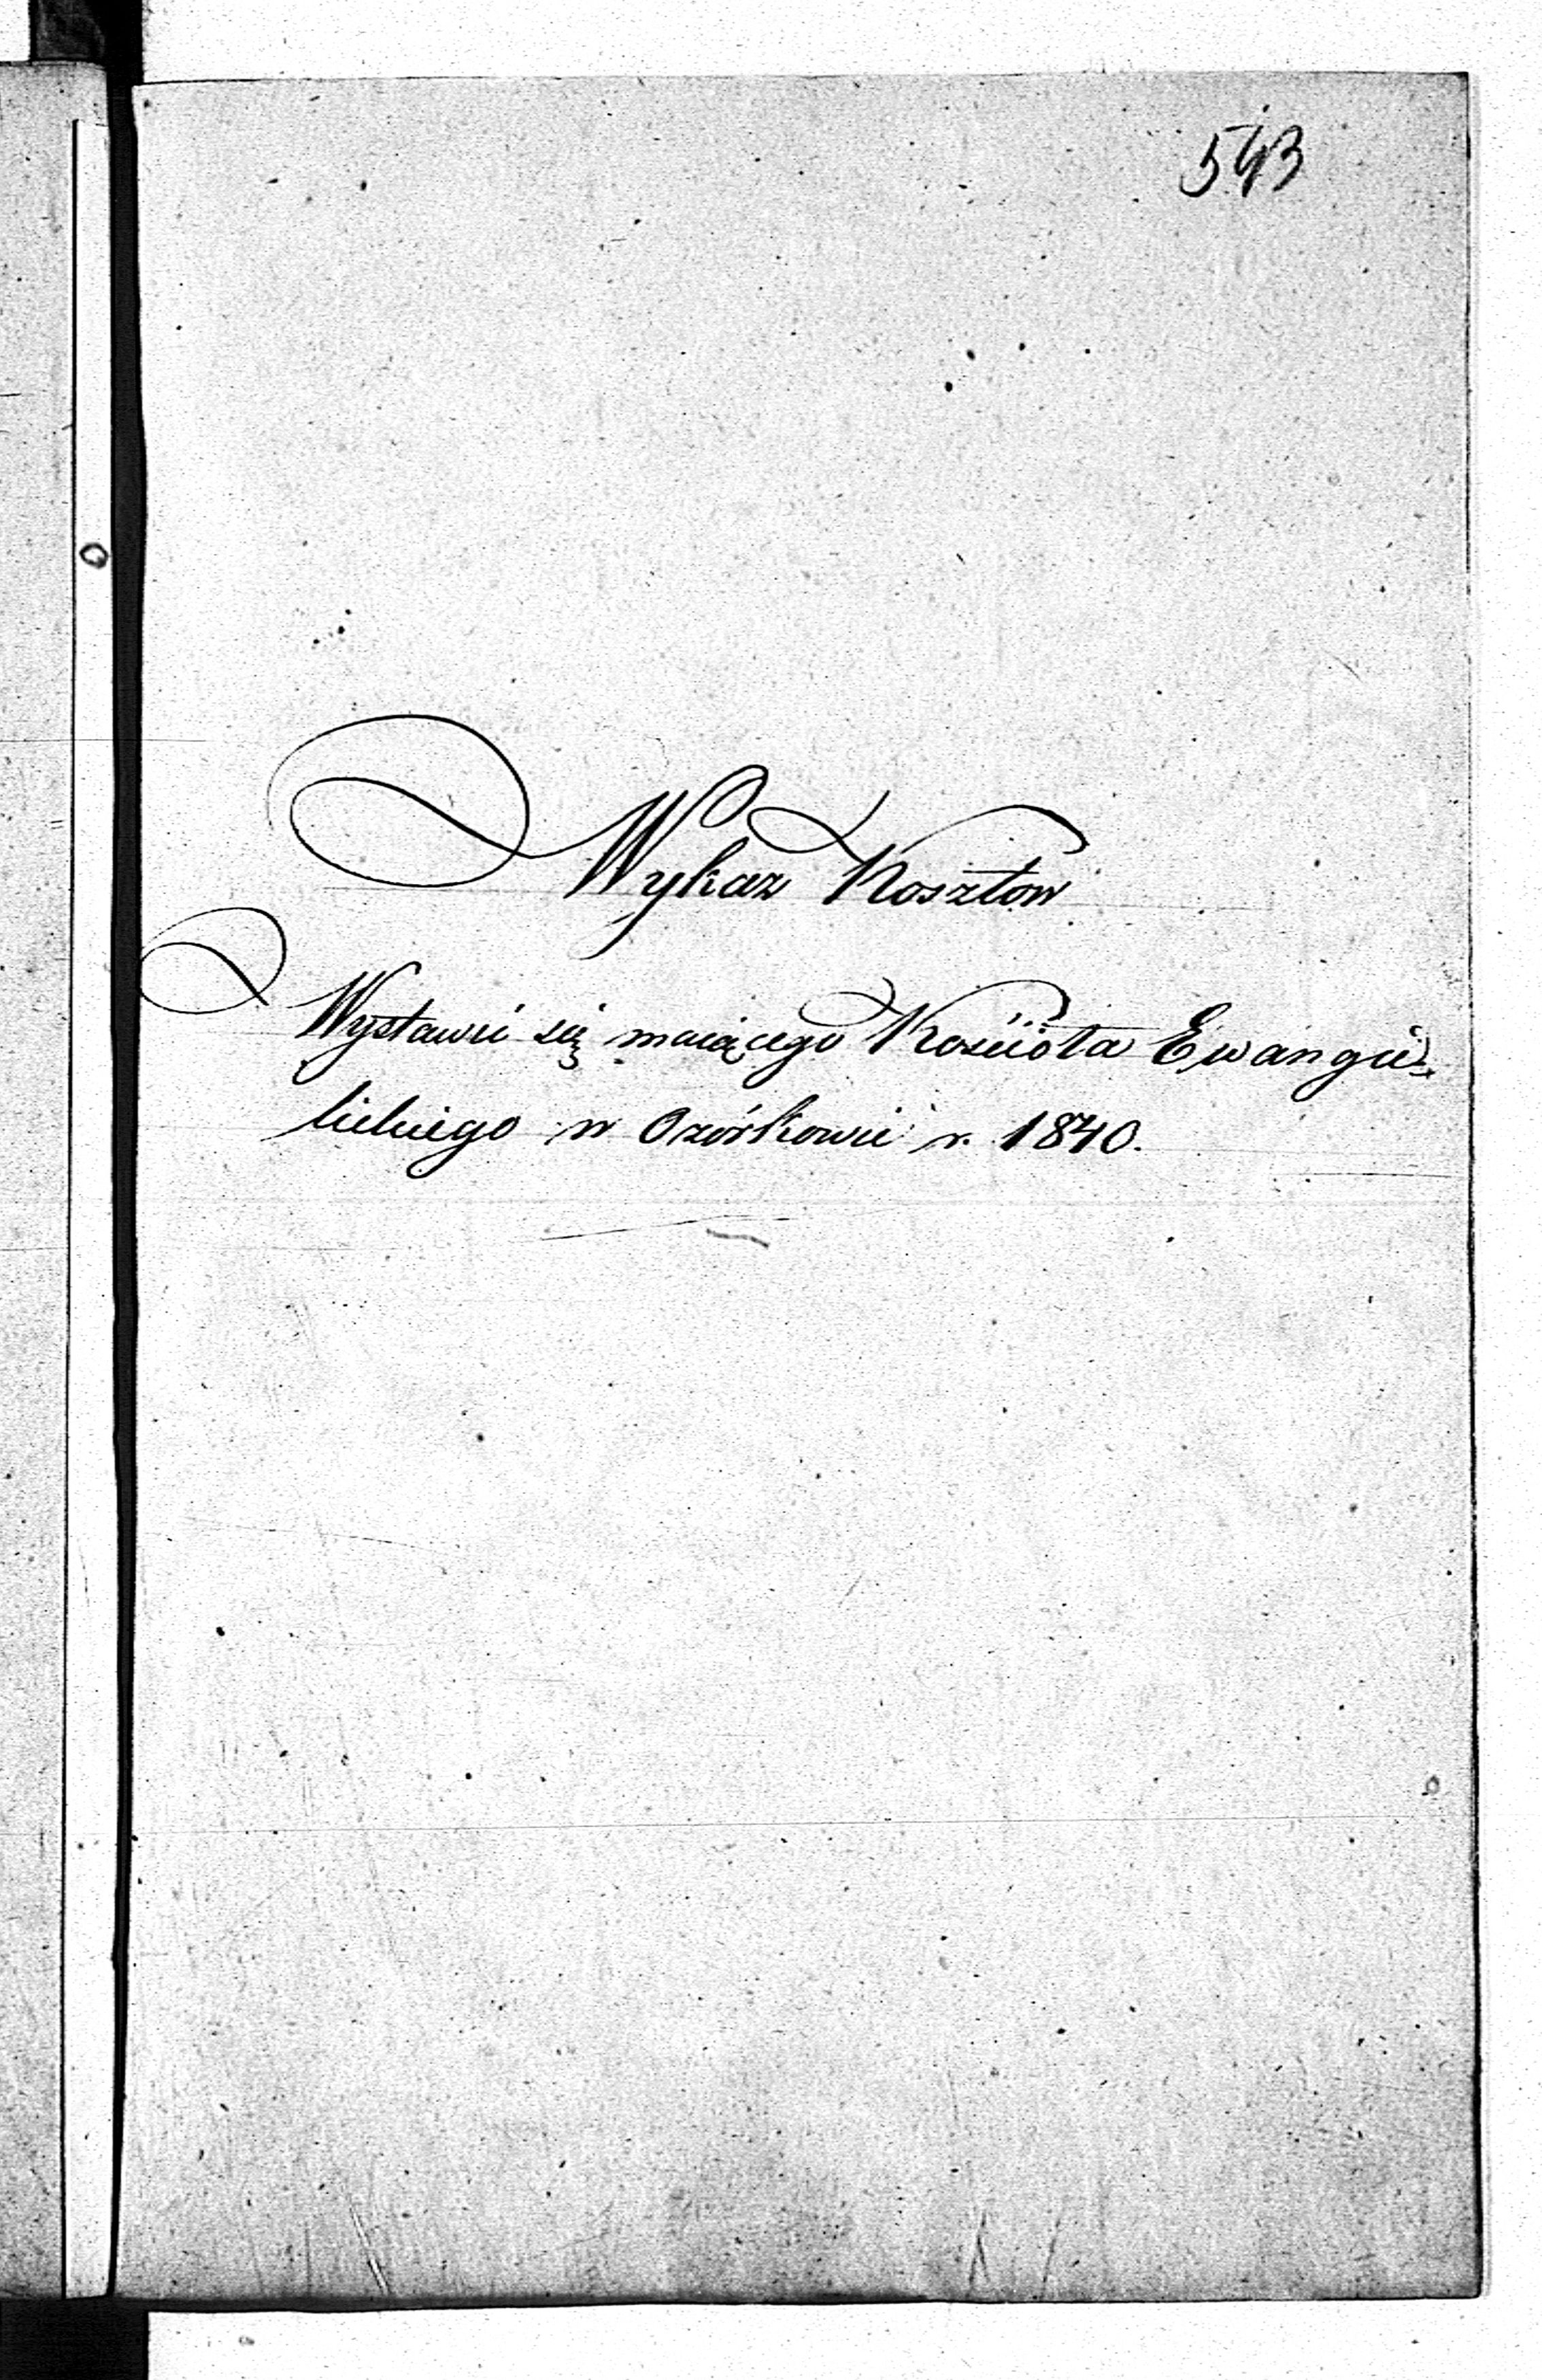 543
Wykaz Kosztow
Wystawić się maiącego Kościoła Ewangie=
lickiego w Ozórkowie r. 1840.